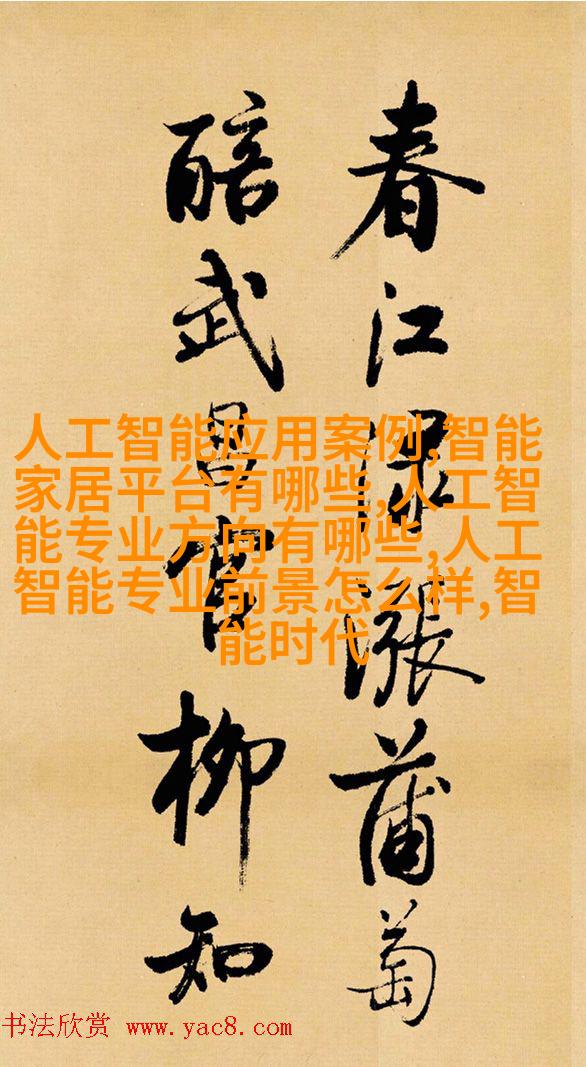 春江渌涨蒲萄
醅武昌官柳知
人工智能应用案例,智能
家居平台有哪些,人工智
能专业方向有哪些,人工
智能专业前景怎么样,智
能时代
书法欣赏 www.yac8.com